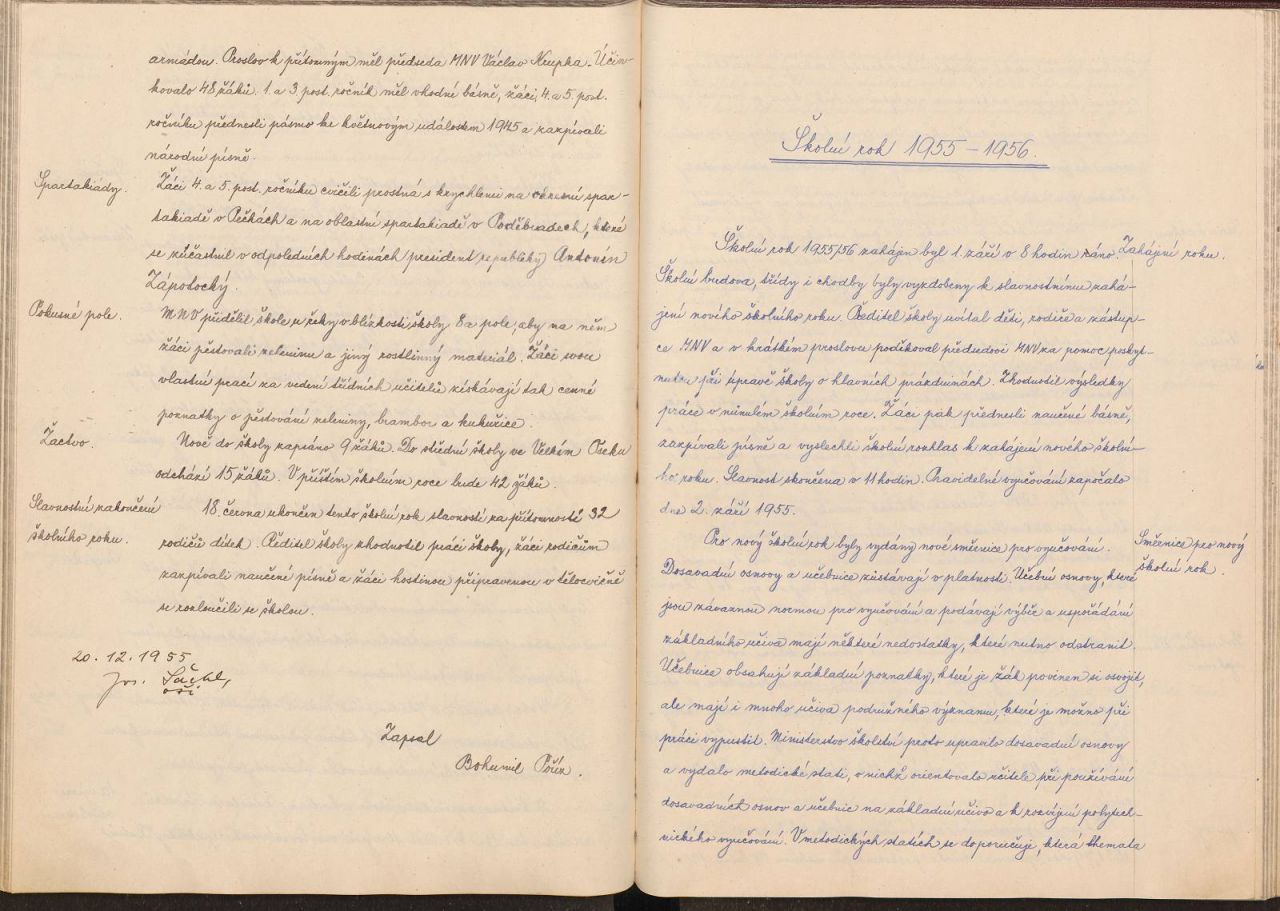 armádou. Proslov k přítomným měl předseda MNV Václav Krupka. Účin-
kovalo 48 žáků. 1. a 3. post. ročník měl vhodné básně, žáci 4. a 5. post.
ročníku přednesli pásmo ke květnovým událostem 1945 a zazpívali
národní písně.
Spartakiády.
Žáci 4. a 5. post. ročníku cvičili prostná s krychlemi na okresní spar-
takiadě v Pečkách a na oblastní spartakiadě v Poděbradech, které
se zúčastnil v odpoledních hodinách president republiky Antonín
Zápotocký.
Pokusné pole.
MNV přidělil škole u řeky v blízkosti školy 8 a pole, aby na něm
žáci pěstovali zeleninu a jiný rostlinný materiál. Žáci svou
vlastní prací za vedení třídních učitelů získávají tak cenné
poznatky o pěstování zeleniny, brambor a kukuřice.
Žactvo.
Nově do školy zapsáno 9 žáků. Do střední školy ve Velkém Oseku
odchází 15 žáků. V příštím školním roce bude 42 žáků.
Slavnostní zakončení
školního roku.
18. června ukončen tento školní rok slavností za přítomnosti 32
rodičů dítek. Ředitel školy zhodnotil práci školy, žáci rodičům
zazpívali naučené písně a žáci hostinou připravenou v tělocvičně
se rozloučili se školou.
20. 12. 1955
Zapsal
Bohumil
Školní rok 1955 - 1956.
Školní rok 1955/56 zahájen byl 1. září v 8 hodin ráno.
Zahájení roku.
Školní budova, třídy i chodby byly vyzdobeny k slavnostnímu zahá-
jení nového školního roku. Ředitel školy uvítal děti, rodiče a zástup-
ce MNV a v krátkém proslovu poděkoval předsedovi MNV za pomoc poskyt-
nutou při úpravě školy o hlavních prázdninách. Zhodnotil výsledky
práce v minulém školním roce. Žáci pak přednesli naučené básně,
zazpívali písně a vyslechli školní rozhlas k zahájení nového školní-
ho roku. Slavnost skončena v 11 hodin. Pravidelné vyučování započalo
dne 2. září 1955.
Pro nový školní rok byly vydány nové směrnice pro vyučování.
Směrnice pro nový
školní rok.
Dosavadní osnovy a učebnice zůstávají v platnosti. Učební osnovy, které
jsou závaznou normou pro vyučování a podávají výběr a uspořádání
základního učiva mají některé nedostatky, které nutno odstranit.
Učebnice obsahují základní poznatky, které je žák povinen si osvojit,
ale mají i mnoho učiva podružného významu, které je možno při
práci vypustit. Ministerstvo školství proto upravilo dosavadní osnovy
a vydalo metodické stati, v nichž orientovalo učitele při používání
dosavadních osnov a učebnic na základní učivo a k rozvíjení polytech-
nického vyučování. V metodických statích se doporučuje, která themata